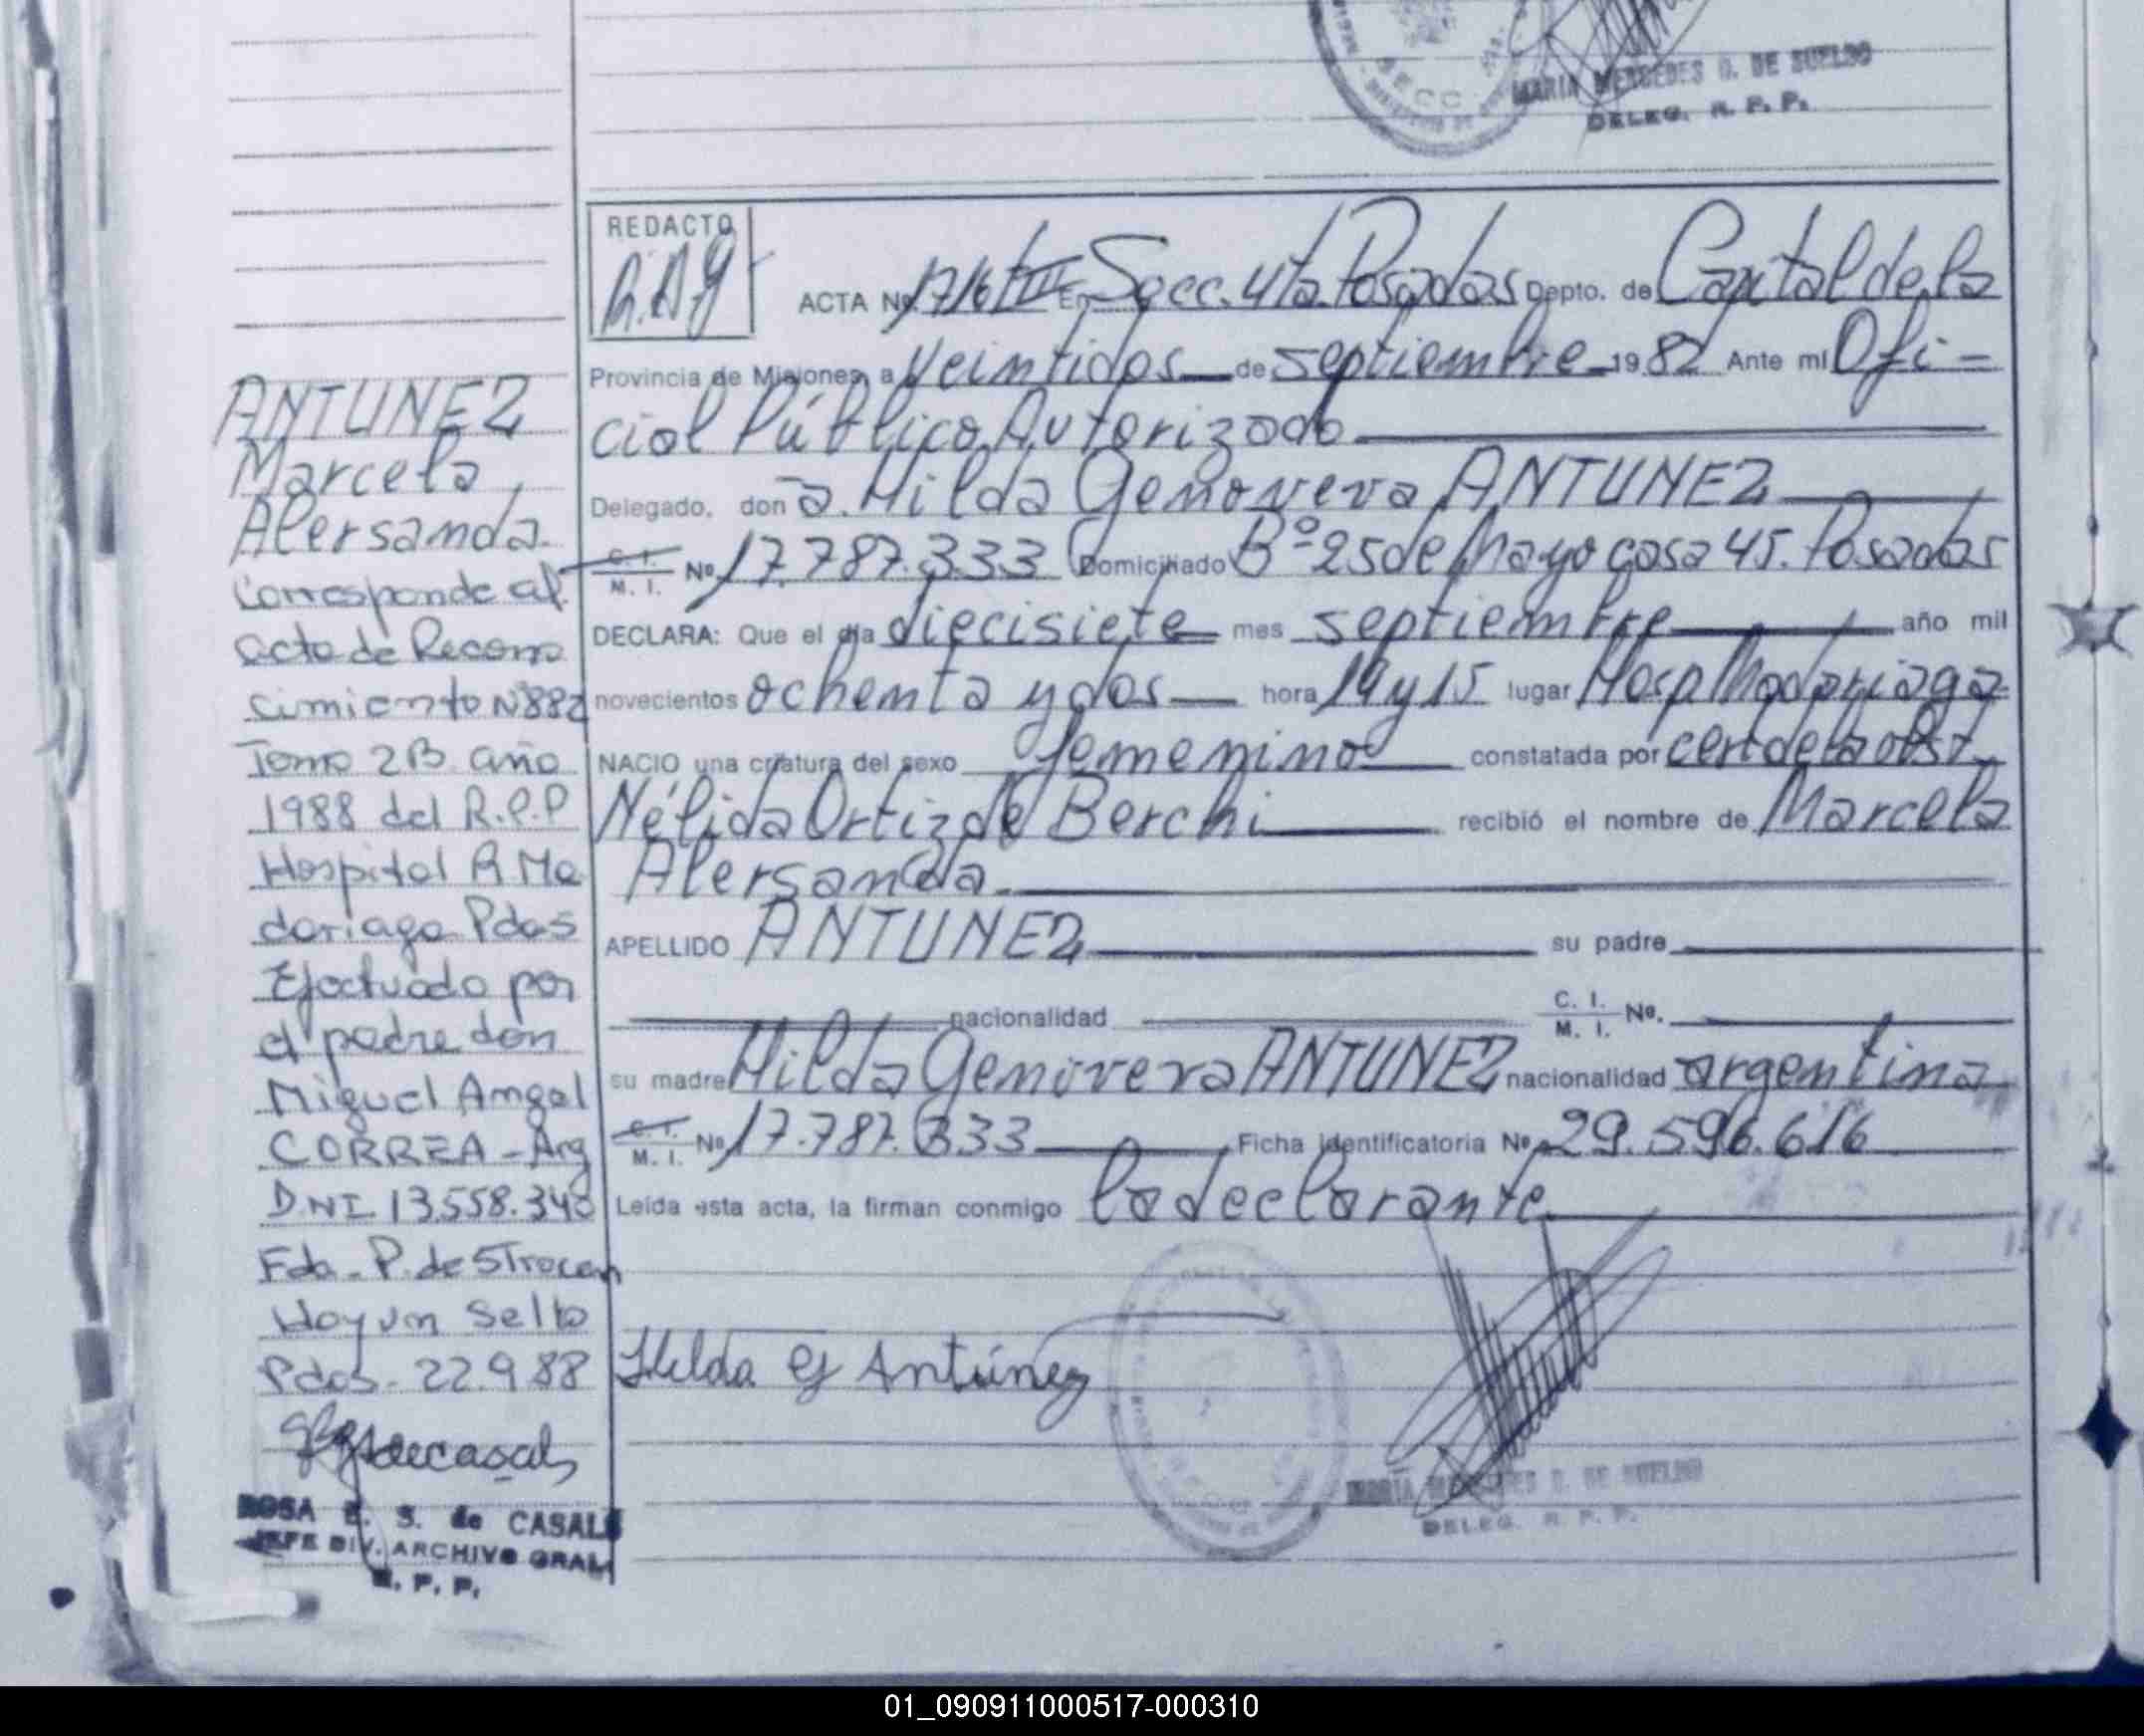 MARIA MERCEDES G. DE SUELDO
DELEG. R. P. P.
REDACTO
ACTA Nº 1716 tº III En Secc. 4ta. Posadas Depto. de Capital de la
Provincia de Misiones, a veintidos de septiembre 1982 Ante mí Ofi-
cial Público Autorizado
Delegado, don a. Hilda Genoveva ANTUNEZ
C. I. M. I. Nº 17.787.333 Domiciliado Bº 25 de Mayo casa 45. Posadas
DECLARA: Que el día diecisiete mes septiembre año mil
novecientos ochenta y dos hora 19 y 15 lugar Hosp Madariaga
NACIO una criatura del sexo femenino constatada por cert de la obst.
Nélida Ortiz de Berchi recibió el nombre de Marcela
Alersanda.
APELLIDO ANTUNEZ su padre
nacionalidad C. I. M. I. Nº.
su madre Hilda Genoveva ANTUNEZ nacionalidad argentina
C. I. M. I. Nº 17.787.333 Ficha identificatoria Nº 29.596.616
Leída esta acta, la firman conmigo la declarante
Hilda G Antúnez
MARÍA MERCEDES G. DE SUELDO
DELEG. R. P. P.
ANTUNEZ
Marcela
Alersanda.
Corresponde al
acta de Recono
cimiento Nº 882
Tomo 2B año
1988 del R.P.P
Hospital R Ma
dariaga Pdas
Efectuado por
el padre don
Miguel Angel
CORREA - Arg
DNI. 13.558.340
Fda. P. de
Hay un Sello
Pdas. 22.9.88
ROSA E. S. de CASALS
JEFE DIV. ARCHIVO GRAL
R. P. P.
01_090911000517-000310